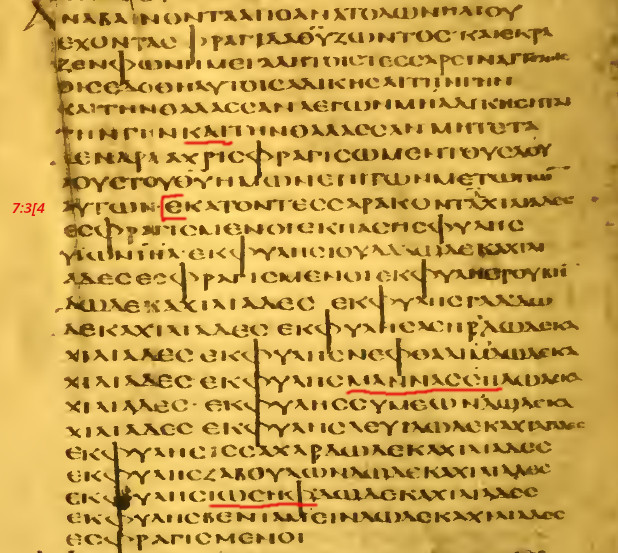 ΑΝΑΒΑΙΝΟΝΤΑΑΠΟΑΝΑΤΟΛΩΝΗΛΙΟΥ
ΕΧΟΝΤΑCΦΡΑΓΙΔΑΘΥΖΩΝΤΟC·ΚΑΙΕΚΡΑ
ΖΕΝΦΩΝΗΜΕΓΑΛΗΤΟΙCΤΕCCΑΡCΙΝΑΓΓΕΛΟΙC
ΟΙCΕΔΟΘΗΑΥΤΟΙCΑΔΙΚΗCΑΙΤΗΝΓΗΝ
ΚΑΙΤΗΝΘΑΛΑCCΑΝΛΕΓΩΝΜΗΑΔΙΚΗCΗΤΑΙ
ΤΗΝΓΗΝΚΑΙΤΗΝΘΑΛΑCCΑΝΜΗΤΕΤΑ
ΔΕΝΔΡΑΑΧΡΙCΦΡΑΓΙCΩΜΕΝΤΟΥCΔΟΥ
ΛΟΥCΤΟΥΘΥΗΜΩΝΕΠΙΤΩΝΜΕΤΩΠΩΝ
7:3[4 ΑΥΤΩΝ·ΕΚΑΤΟΝΤΕCCΑΡΑΚΟΝΤΑΧΙΛΙΑΔΕC
ΕCΦΡΑΓΙCΜΕΝΟΙΕΚΠΑCΗCΦΥΛΗC
ΥΙΩΝΙΗΛ·ΕΚΦΥΛΗCΙΟΥΔΑΔΩΔΕΚΑΧΙΛΙ
ΑΔΕCΕCΦΡΑΓΙCΜΕΝΟΙΕΚΦΥΛΗCΡΟΥΒΗ
ΔΩΔΕΚΑΧΙΛΙΑΔΕC ΕΚΦΥΛΗCΓΑΔΔΩ
ΔΕΚΑΧΙΛΙΑΔΕC ΕΚΦΥΛΗCΑCΗΡΔΩΔΕΚΑ
ΧΙΛΙΑΔΕC ΕΚΦΥΛΗCΝΕΦΘΑΛΙΜΔΩΔΕΚΑ
ΧΙΛΙΑΔΕC ΕΚΦΥΛΗCΜΑΝΝΑCCΗΔΩΔΕΚΑ
ΧΙΛΙΑΔΕC· ΕΚΦΥΛΗCCΥΜΕΩΝΔΩΔΕΚΑ
ΧΙΛΙΑΔΕC ΕΚΦΥΛΗCΛΕΥΙΔΩΔΕΚΑΧΙΛΙΑΔΕC
ΕΚΦΥΛΗCΙCCΑΧΑΡΔΩΔΕΚΑΧΙΛΙΑΔΕC
ΕΚΦΥΛΗCΖΑΒΟΥΛΩΝΔΩΔΕΚΑΧΙΛΙΑΔΕC
ΕΚΦΥΛΗCΙΩCΗΦΔΩΔΕΚΑΧΙΛΙΑΔΕC
ΕΚΦΥΛΗCΒΕΝΙΑΜΕΙΝΔΩΔΕΚΑΧΙΛΙΑΔΕC
ΕCΦΡΑΓΙCΜΕΝΟΙ